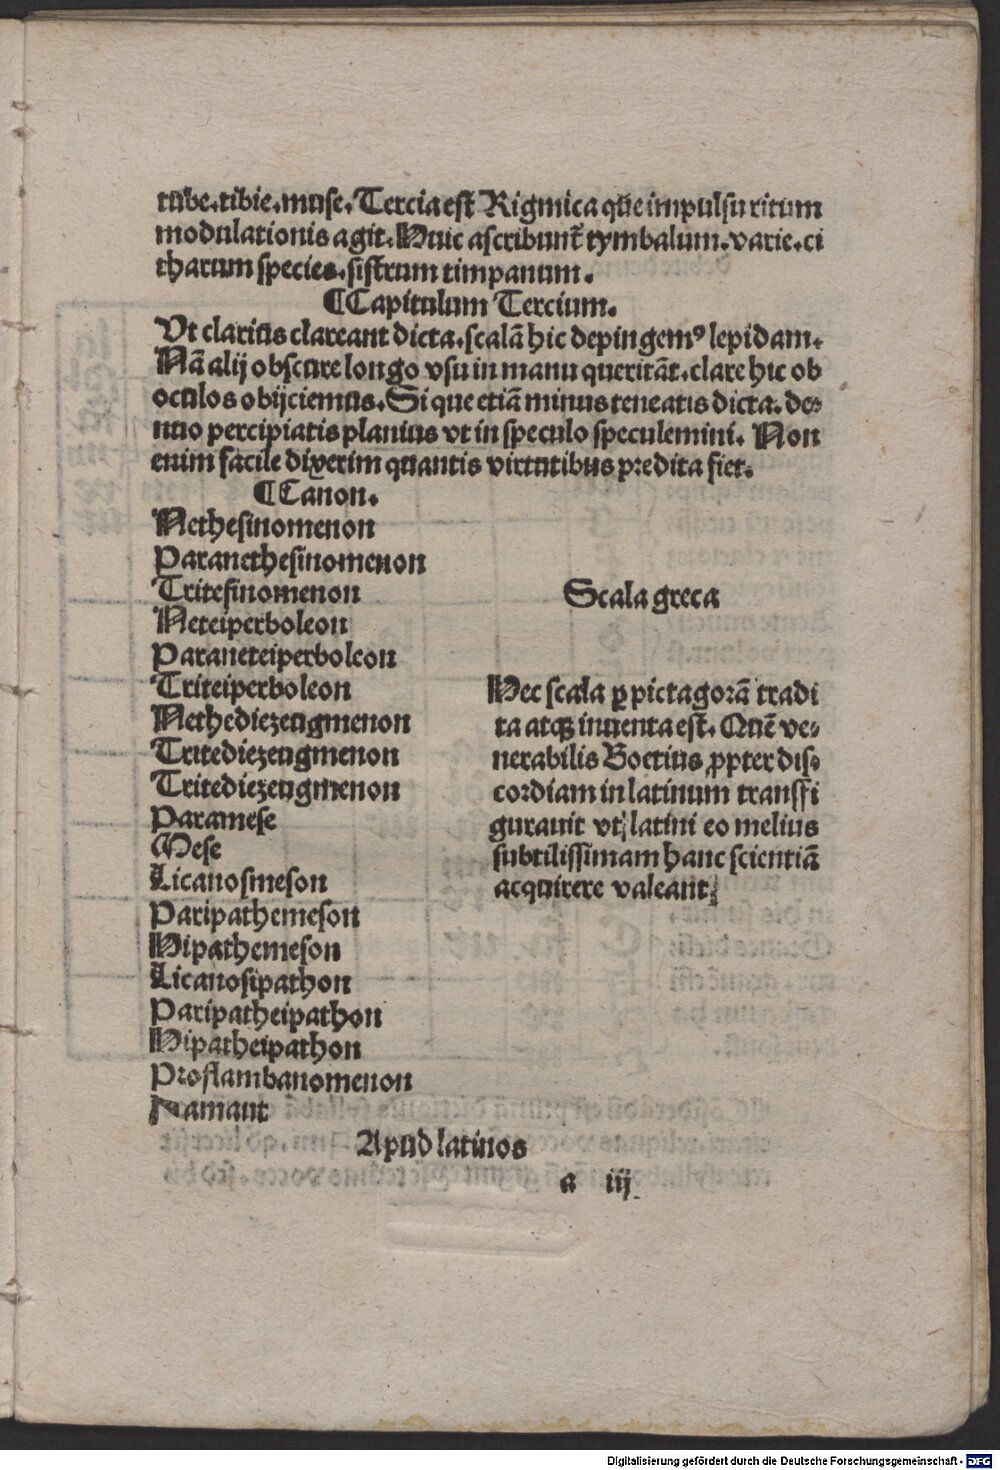 tube.tibie.muse. Tercia est Rigmica que impulsu ritum
modulationis agit. Huic ascribunt̄ tymbalum.varie.ci
tharum species.sistrum timpanum.
¶Capitulum Tercium.
Ut clarius clareant dicta.scalā hic depingemꝰ lepidam.
Nā alij obscure longo vsu in manu queritāt.clare hic ob
oculos obijciemus. Si que etiā minus teneatis dicta. de⸗
nuo percipiatis planius vt in speculo speculemini. Non
enim facile dixerim quantis virtutibus predita fiet.
¶Canon.
Nethesinomenon
Paranethesinomenon
Tritesinomenon
Scala greca
Neteiperboleon
Paraneteiperboleon
Triteiperboleon
Nethediezeugmenon
Tritediezeugmenon
Tritediezeugmenon
Paramese
Mese
Licanosmeson
Paripathemeson
Hipathemeson
Licanosipathon
Paripatheipathon
Hipatheipathon
Proslambanomenon
Namant
Hec scala ꝑ pictagorā tradi
ta atqꝫ inuenta est. Quē ve⸗
nerabilis Boetius ꝓpter dis⸗
cordiam in latinum transfi
gurauit vt latini eo melius
subtilissimam hanc scientiā
acquirere valeant
Apud latinos
a iij
Digitalisierung gefördert durch die Deutsche Forschungsgemeinschaft - DFG